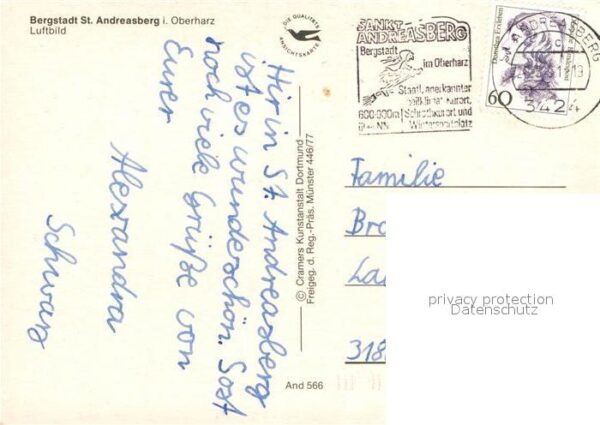 Bergstadt St. Andreasberg i. Oberharz
Luftbild
DIE QUALITÄTS
ANSICHTSKARTE
SANKT
ANDREASBERG
Bergstadt
im Oberharz
Staatl. anerkannter
heilklimat. Kurort,
600-900m Schrothkurort und
über NN Wintersportplatz
Dorothea Erxleben
Deutsche Bundespost
60
ST ANDREASBERG
3424
Hir in St. Andreasberg
ist es wunderschön. Sost
noch viele Grüße von
Eurer
Alexandra
Schwarz
© Cramers Kunstanstalt Dortmund
Freigeg. d. Reg.-Präs. Münster 446/77
And 566
Familie
Bro
La
318
privacy protection
Datenschutz